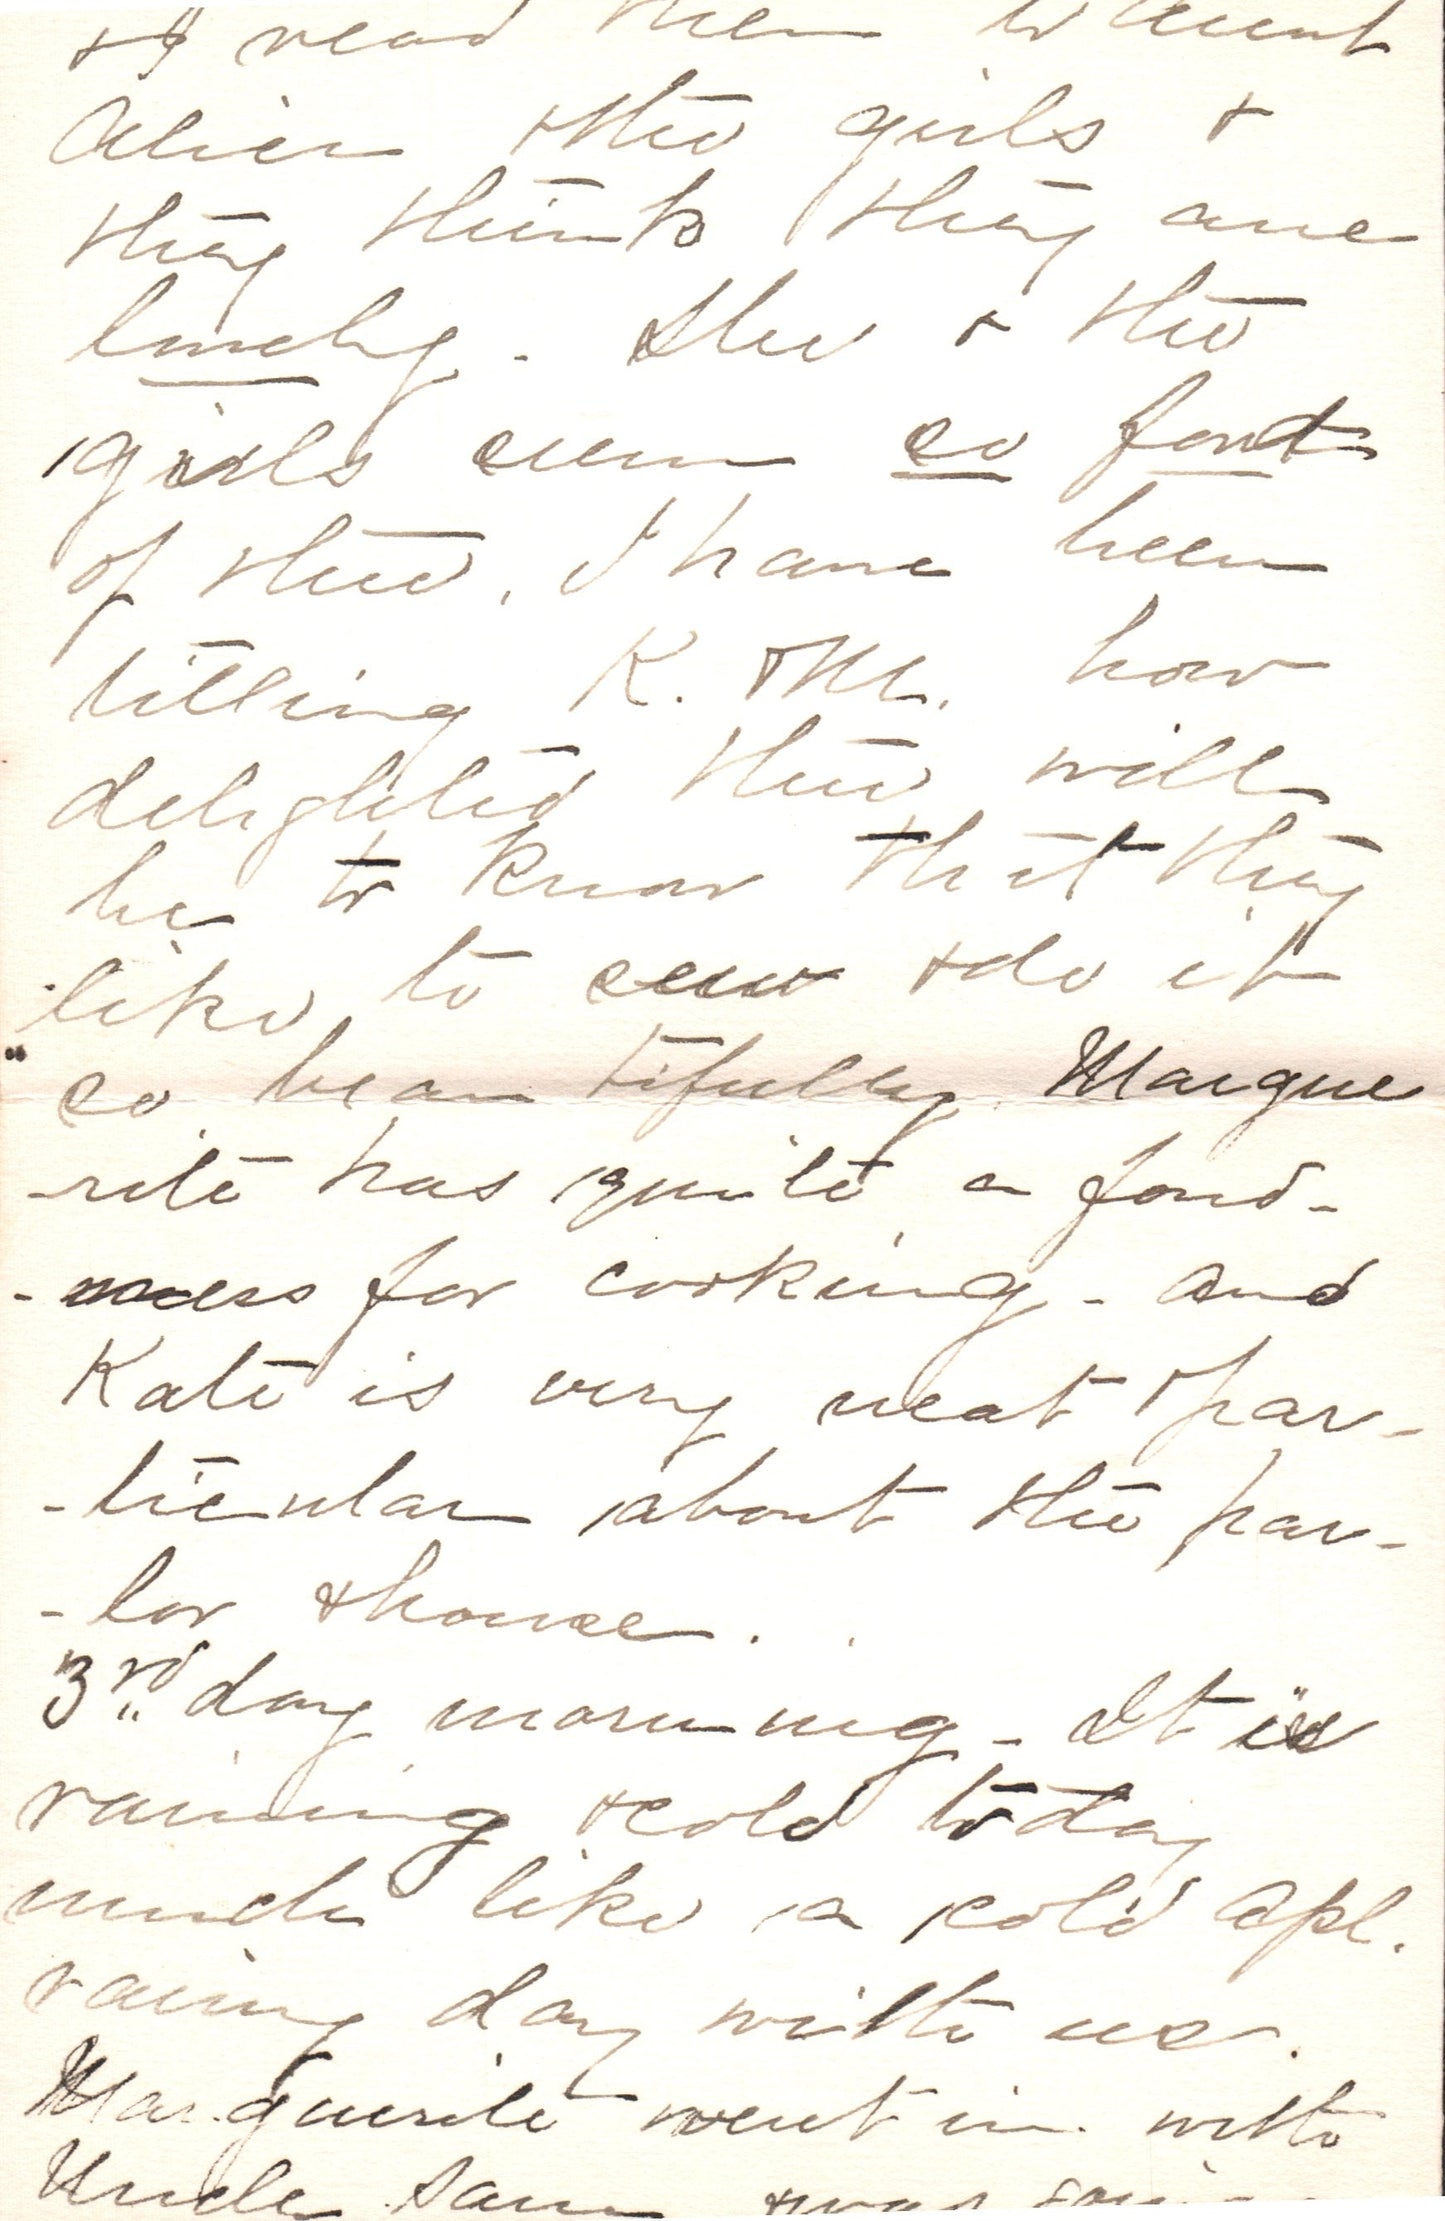 & I read them to Aunt
Alice & the girls &
they think they are
lovely. She & the
girls seem so fond
of thee, I have been
telling K. & M. how
delighted thee will
be to know that they
like to sew & do it
so beautifully. Margue
-rite has quite a fond-
-ness for cooking - and
Kate is very neat & par-
-ticular about the par-
-lor & house.
3rd day morning - It is
raining & cold today
much like a cold Apl.
rainy day with us.
Marguerite went in with
Uncle Sam & was